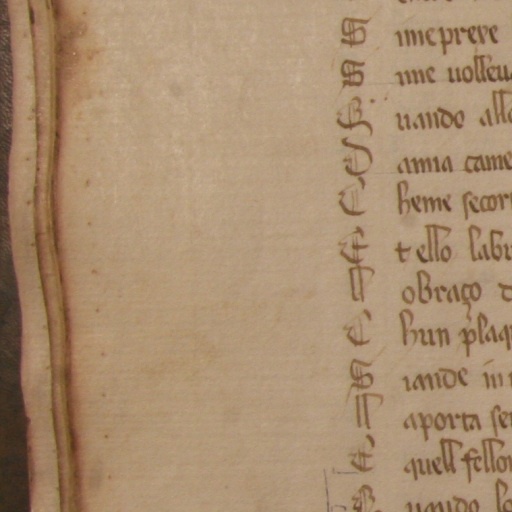 S ime preve
S ime uolleu
Q uando allo
anima came
C heme secor
E t ello labr
L obraço d
C hun plaq
S iando in
L aporta se
E quell fello
Q uando lo